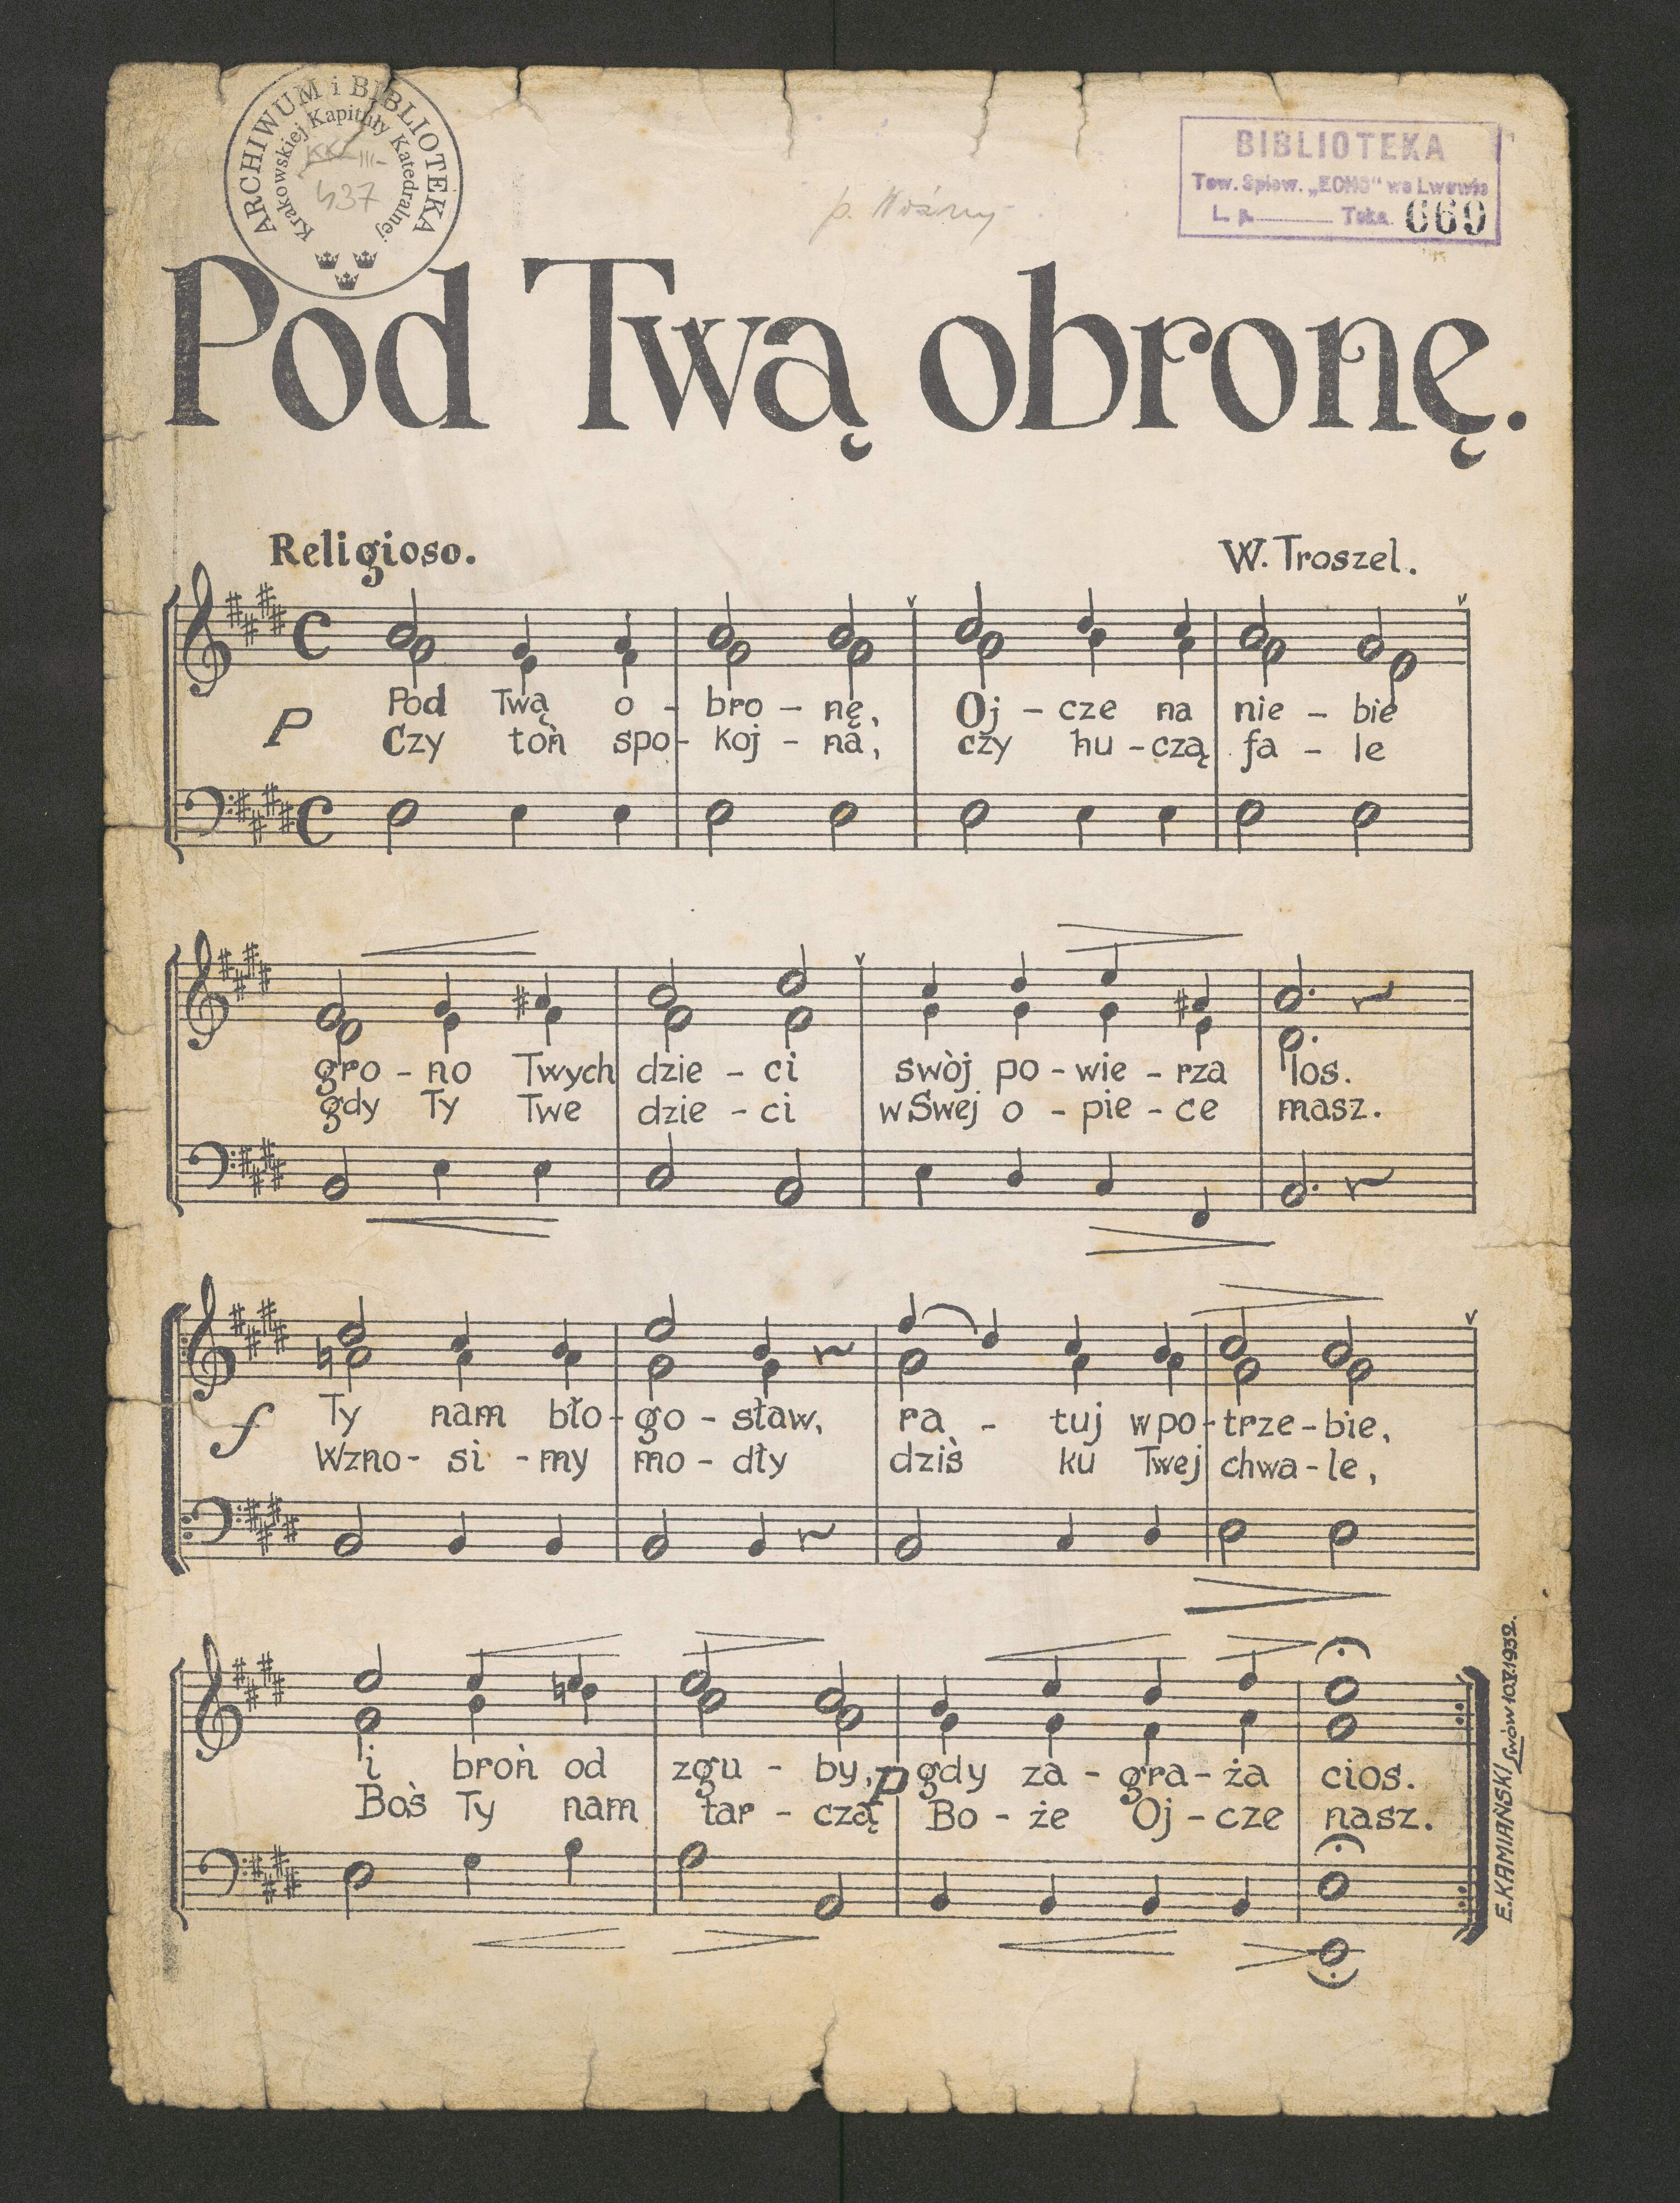 ARCHIWUM i BIBLIOTEKA
Krakowskiej Kapituły Katedralnej
KKK III-
437
BIBLIOTEKA
Tow. Śpiew. „ECHO" we Lwowie
L. p. Teka. 669
Pod Twą obronę.
Religioso.
W. Troszel.
P
Pod Twą o - bro - nę, Oj - cze na nie - bie
Czy toń spo - koj - na, czy hu - czą fa - le
gro - no Twych dzie - ci swòj po - wie - rza los.
gdy Ty Twe dzie - ci w Swej o - pie - ce masz.
f
Ty nam bło - go - sław, ra - tuj w po - trze - bie,
Wzno - si - my mo - dły dziś ku Twej chwa - le,
i broń od zgu - by, p gdy za - gra - ża cios.
Boś Ty nam tar - czą Bo - że Oj - cze nasz.
E. KAMIAŃSKI Lwów 10.X.1932.